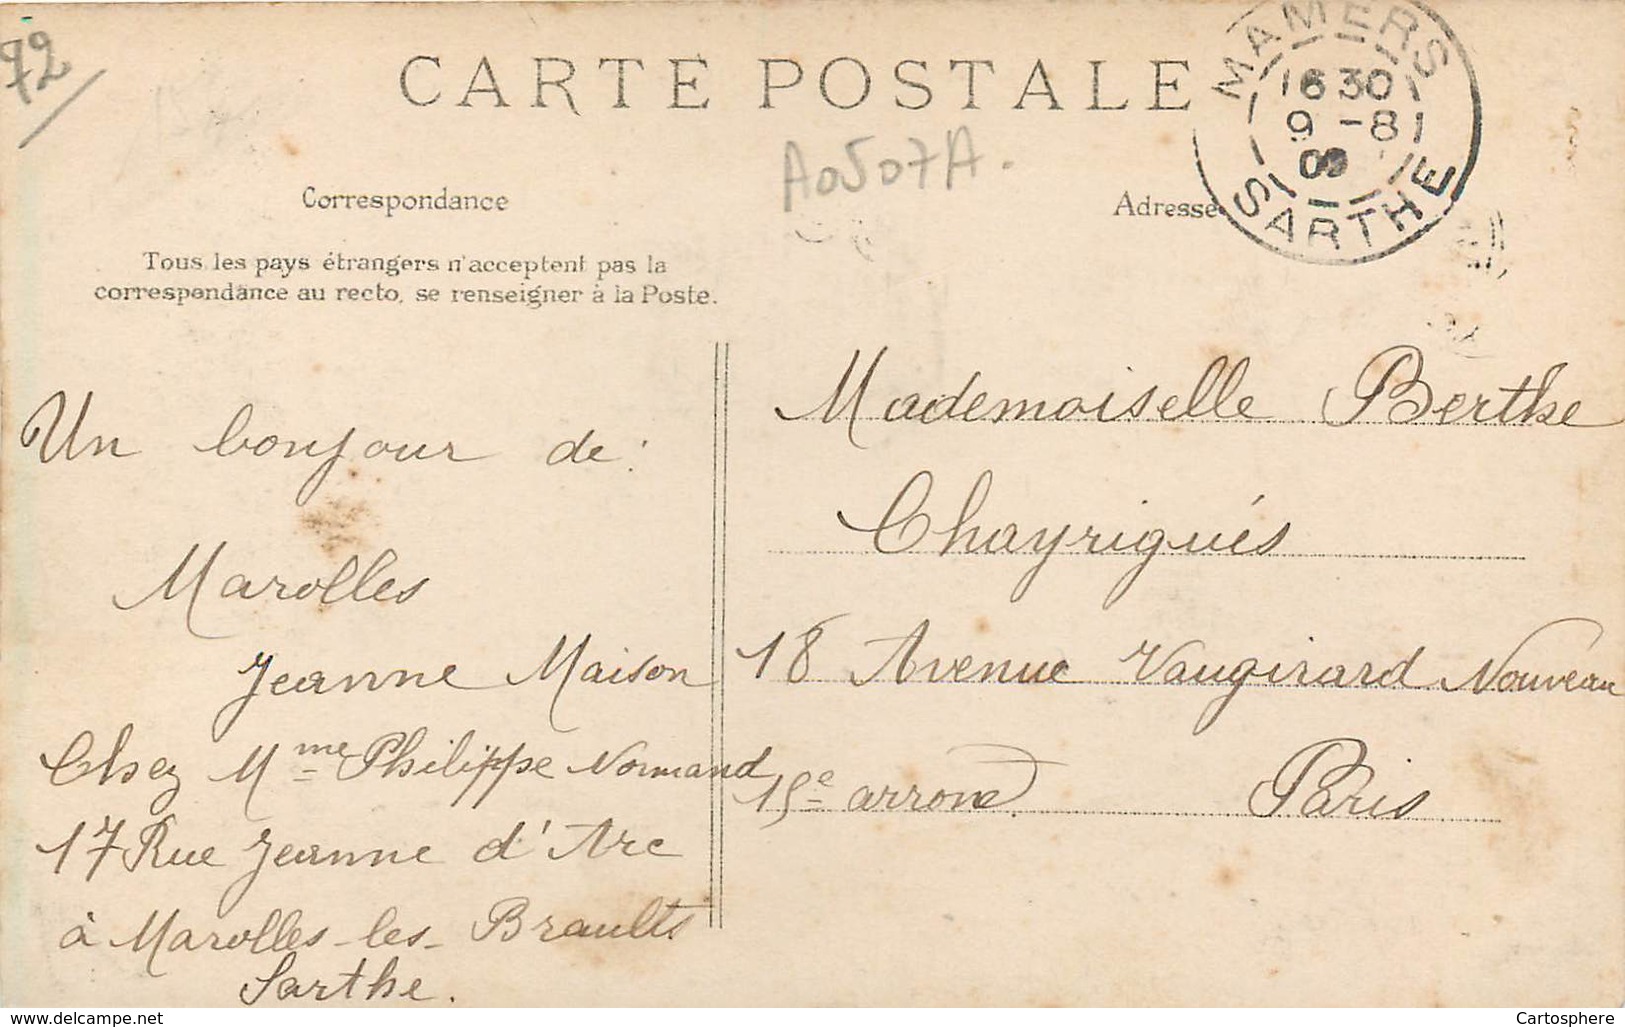 72
CARTE POSTALE
MAMERS
16 30
9 -8
09
SARTHE
A0507A.
Correspondance
Adresse
Tous les pays étrangers n'acceptent pas la
correspondance au recto, se renseigner à la Poste.
Un bonjour de :
Marolles
Jeanne Maison
Chez Mme Philippe Normand
17 Rue Jeanne d'Arc
à Marolles-les-Braults
Sarthe.
Mademoiselle Berthe
Chayriguès
18 Avenue Vaugirard Nouveau
15e arrond. Paris
www.delcampe.net
Cartosphere